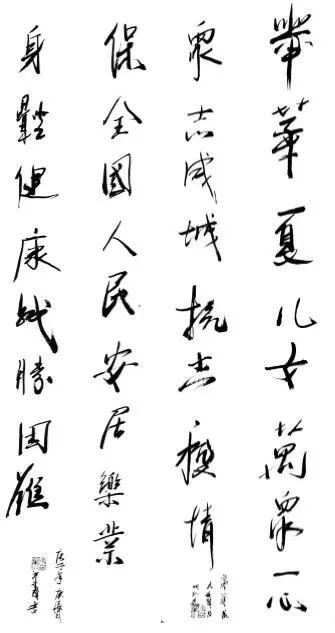 華夏儿女萬衆一心
衆志成城抗击疫情
保全國人民安居樂業
身體健康战勝困難
庚子年